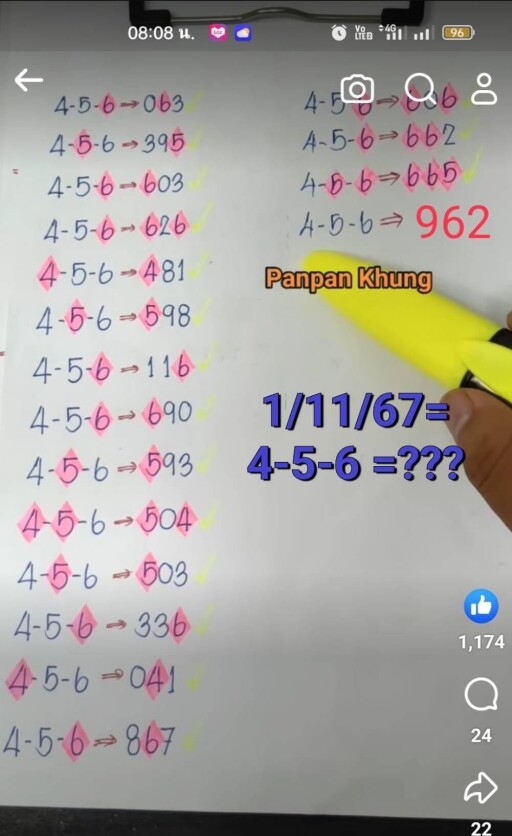 08:08 น.
Vo LTE 2 4G 96
4-5-6→063
4-5-6→395
4-5-6→603
4-5-6→626
4-5-6→481
4-5-6→598
4-5-6→116
4-5-6→690
4-5-6→593
4-5-6→504
4-5-6→503
4-5-6→336
4-5-6→041
4-5-6→867
4-5-6⇒606
4-5-6⇒662
4-5-6⇒665
4-5-6⇒ 962
Panpan Khung
1/11/67=
4-5-6 =???
1,174
24
22